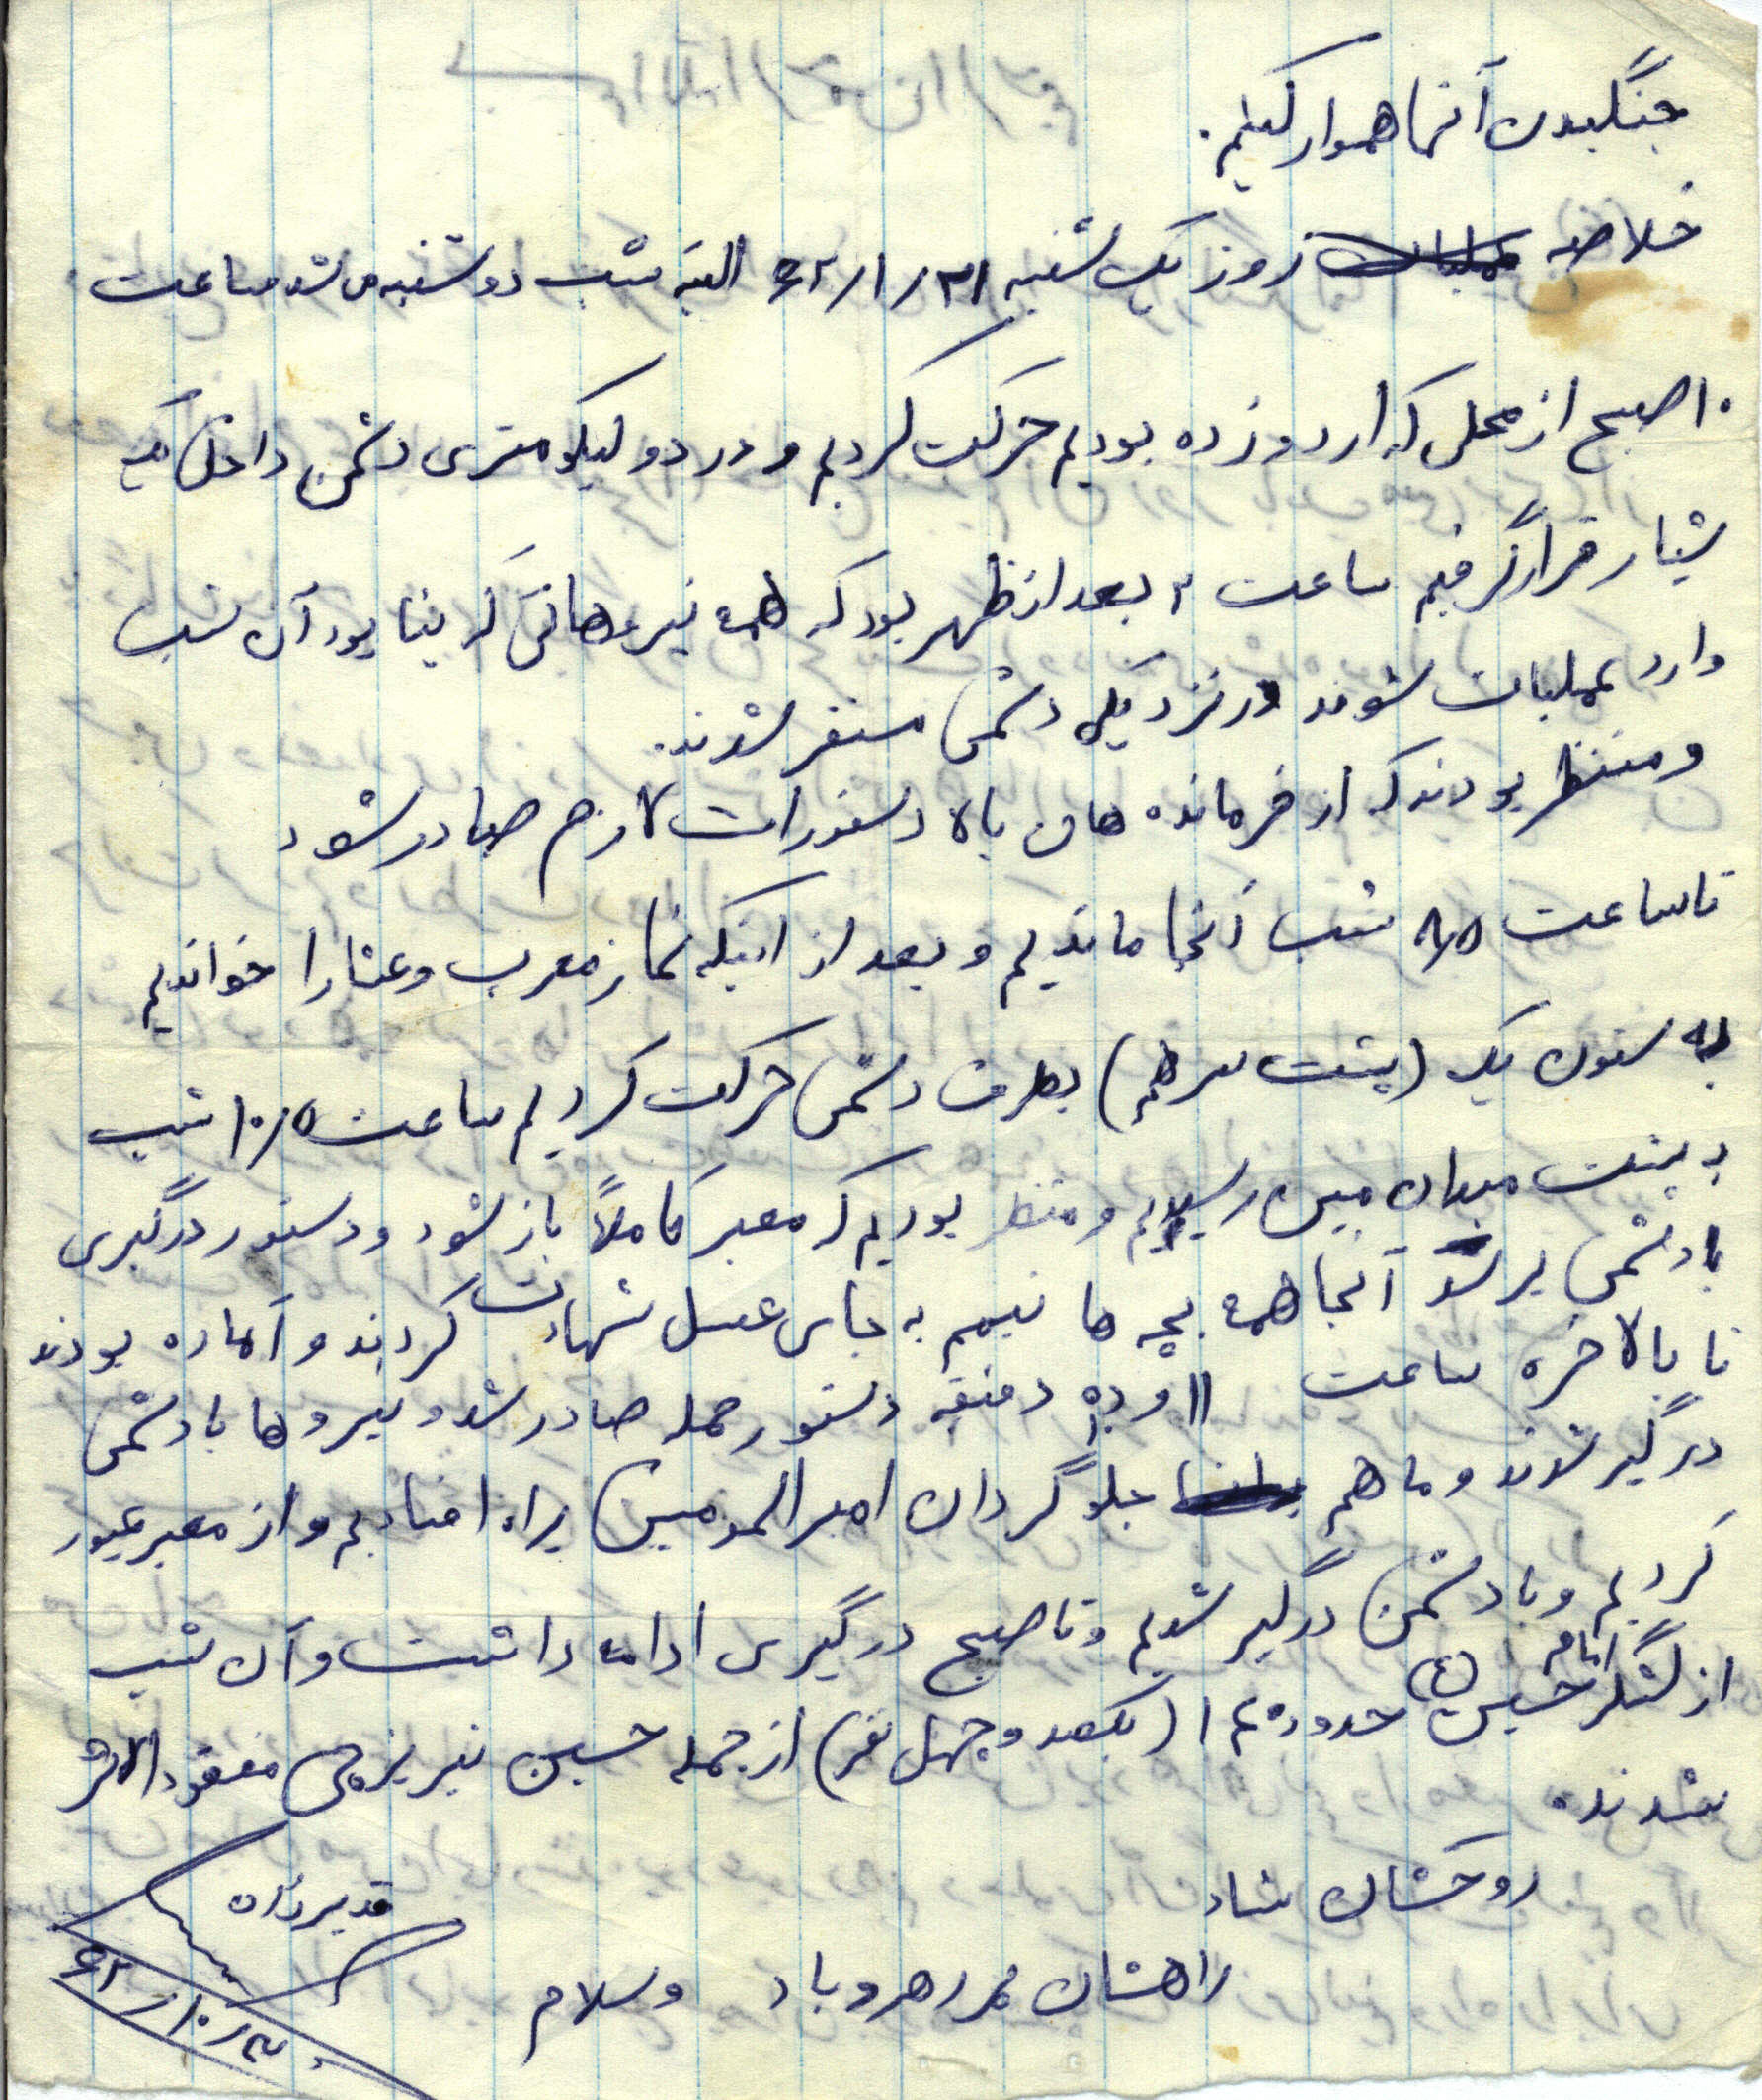 جنگیدن آنها هموار کنیم.
خلاصه روز یک شنبه ۶۲/۱/۲۱ البته شب دوشنبه می شد ساعت
۱۰ صبح از محلی که اردو زده بودیم حرکت کردیم و در دو کیلومتری دشمن داخل یک
شیار قرار گرفتیم ساعت ۲ بعد از ظهر بود که همه نیروهائی که بنا بود آن شب
وارد عملیات شوند در نزدیکی دشمن مستقر شدند.
و منتظر بودند که از فرمانده های بالا دستورات لازم صادر شود
تا ساعت ۸/۵ شب آنجا ماندیم و بعد از اینکه نماز مغرب و عشا را خواندیم
به ستون یک (پشت سر هم) بطرف دشمن حرکت کردیم ساعت ۱۰/۵ شب
به پشت میدان مین رسیدیم و منتظر بودیم که معبر کاملاً باز شود و دستور درگیری
با دشمن برسد آنجا همه بچه ها تیمم به جای غسل شهادت کردند و آماده بودند
تا بالاخره ساعت ۱۱ و دقیقه دستور حمله صادر شد و نیروها با دشمن
درگیر شدند و ما هم جلو گردان امیرالمومنین براه افتادیم و از معبر عبور
کردیم و با دشمن درگیر شدیم و تا صبح درگیری ادامه داشت و آن شب
از لشگر امام حسین (ع) حدود ۱۴۰ (یکصد و چهل نفر) از جمله حسین تبریزچی مفقودالاثر
شدند.
روحشان شاد
راهشان پر رهرو باد وسلام
قدیرزاده
۶۲/۱۰/۳۰